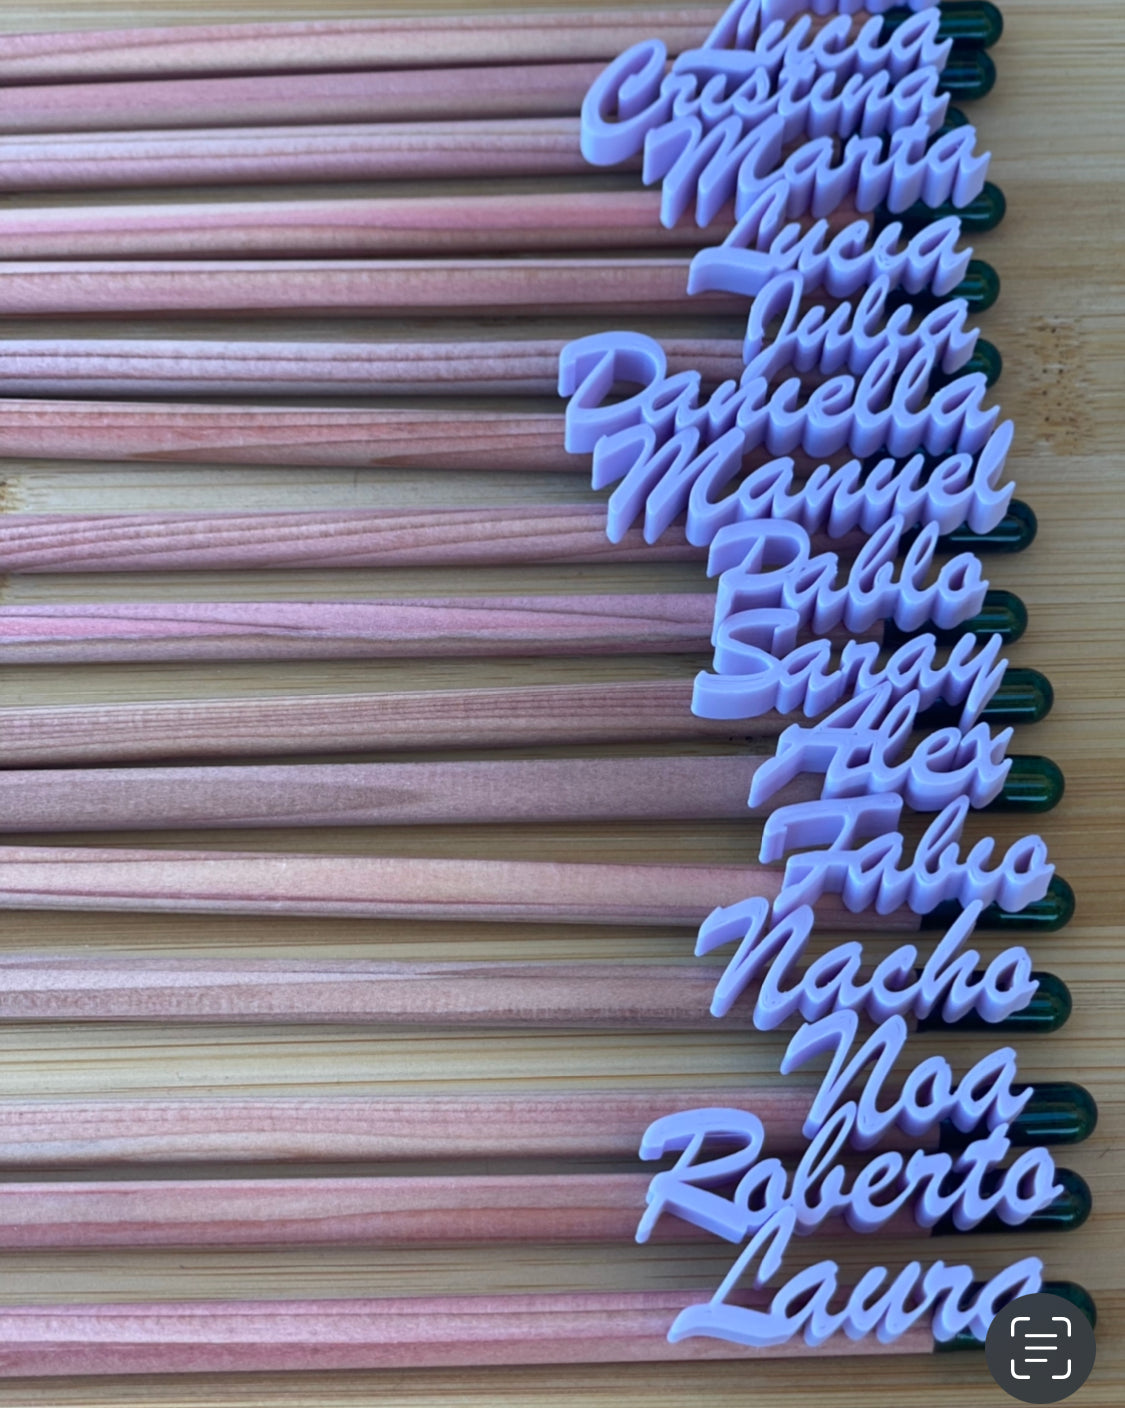 Lucia
Cristina
Marta
Lucia
Julia
Daniella
Manuel
Pablo
Saray
Alex
Fabio
Nacho
Noa
Roberto
Laura